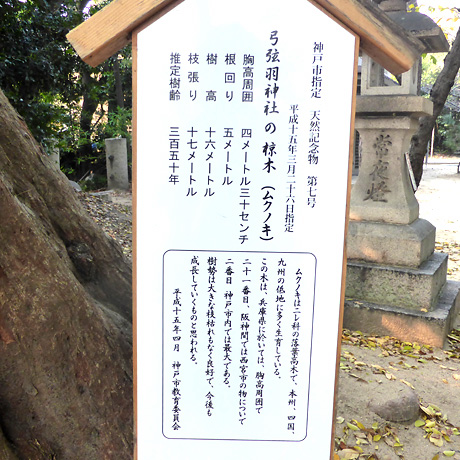 神戸市指定 天然記念物 第七号
平成十五年三月二十六日指定
弓弦羽神社の椋木(ムクノキ)
胸高周囲 四メートル三十センチ
根回り 五メートル
樹高 十六メートル
枝張り 十七メートル
推定樹齢 三百五十年
ムクノキはニレ科の落葉高木で、本州、四国、
九州の低地に多く生育している。
この木は、兵庫県に於いては、胸高周囲で
二十一番目、阪神間では西宮市の物について
二番目 神戸市内では最大である。
樹勢は大きな枝枯れもなく良好で、今後も
成長していくものと思われる。
平成十五年四月 神戸市教育委員会
常夜燈